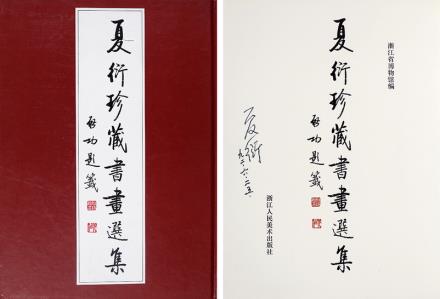 夏衍珍藏書畫選集
啟功題籤
浙江省博物馆编
夏衍珍藏書畫選集
啟功題籤
夏衍
九六.六.二五.
浙江人民美术出版社